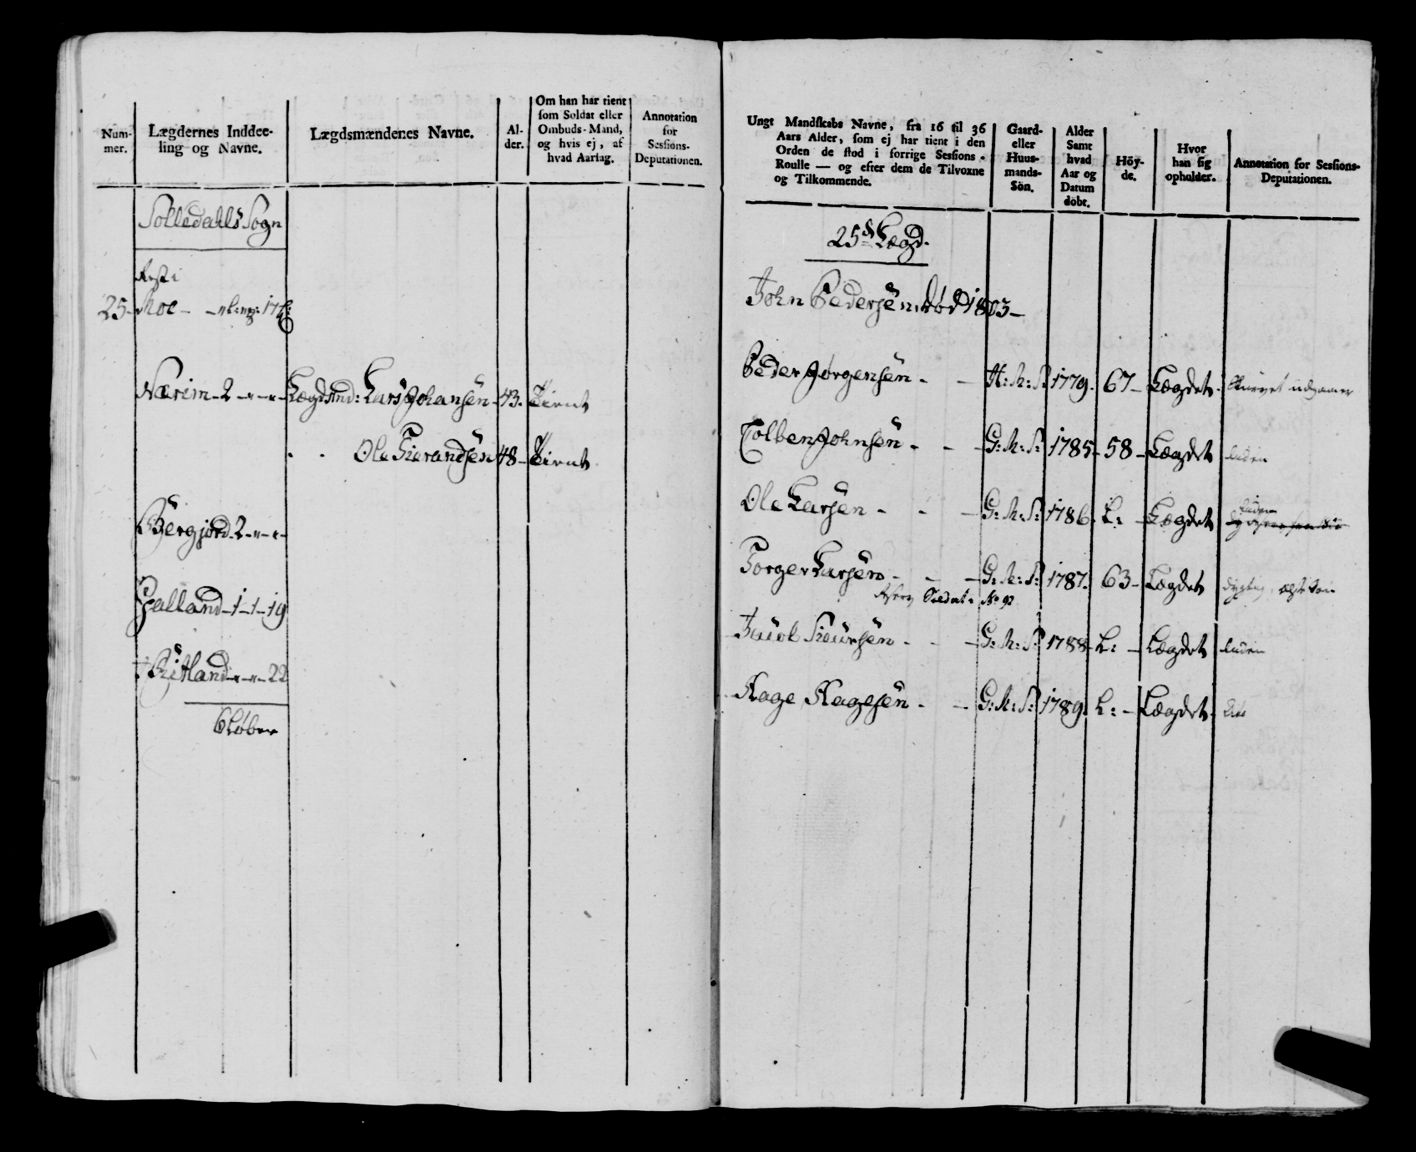 Num-
mer.
Lægdernes Inddee-
ling og Navne.
Lægdsmændenes Navne.
Al-
der.
Om han har tient
som Soldat eller
Ombuds-Mand,
og hvis ej, af
hvad Aarsag.
Annotation
for
Sessions-
Deputationen.
Solledahls Sogn
25 - Moe -
Nærim - 2 - Lægdsmd: Lars Johansen - 43. Tient
Ole Sievandsen 48 - Tient
Bergjord 2
Galland - 1 - 1 - 19
Ritland 22
6 Løber
Ungt Mandskabs Navne, fra 16 til 36
Aars Alder, som ej har tient i den
Orden de stod i forrige Sessions-
Roulle — og efter dem de Tilvoxne
og Tilkommende.
Gaard-
eller
Huus-
mands-
Sön.
Alder
Samt
hvad
Aar og
Datum
döbt.
Höy-
de.
Hvor
han sig
opholder.
Annotation for Sessions-
Deputationen.
25de Lægd.
John Pedersen, død 1803 -
Peder Jørgensen - - H: M: S: 1779. 67 - Lægdet. udgaaer
Tolben Johnsen - - G: M: S: 1785 - 58 - Lægdet liden
Ole Larsen - - - G: M: S: 1786. L: - Lægdet liden
Torger Larsen - - - G: M: S: 1787. 63 - Lægdet dygtig
Soldat No 92
Siursen - - - G: M: S: 1788 - L: - Lægdet liden
Aage Aagesen - - G: M: S: 1789. L: - Lægdet.